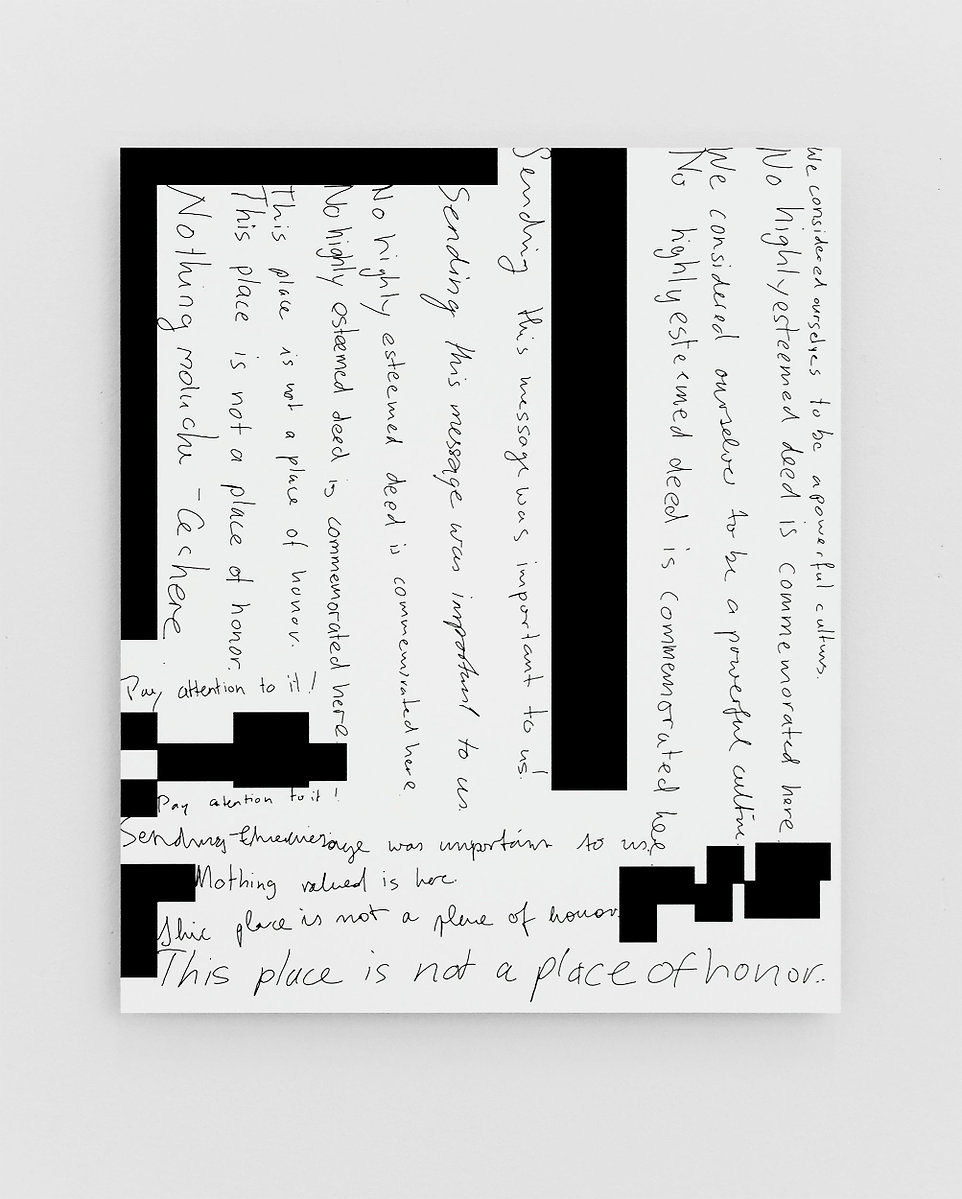 We considered ourselves to be a powerful culture.
No highly esteemed deed is commemorated here.
We considered ourselve to be a powerful culture.
No highly esteemed deed is commemorated here.
Sending this message was important to us!
Sending this message was important to us.
No highly esteemed deed is commemorated here.
No highly esteemed deed is commemorated here
This place is not a place of honor.
This place is not a place of honor.
Nothing here
Pay attention to it!
Pay attention to it!
Sending message was important to us.
Nothing valued is here.
place is not a place of honor.
This place is not a place of honor..